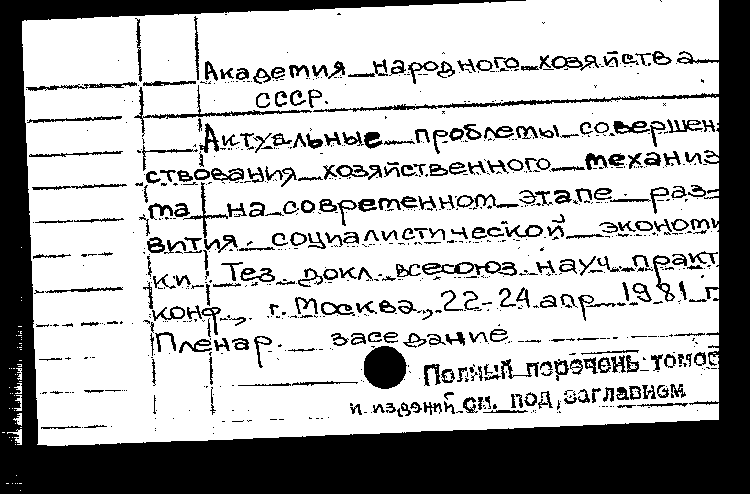 Академия народного хозяйства
СССР.
Актуальные проблемы совершен-
ствования хозяйственного механиз
ма на современном этапе раз-
вития социалистической экономи
ки Тез докл. всесоюз науч практ
конф., г. Москва, 22-24 апр 1981 г
Пленар. заседание
Полный перечень томов
и изданий см. под заглавием